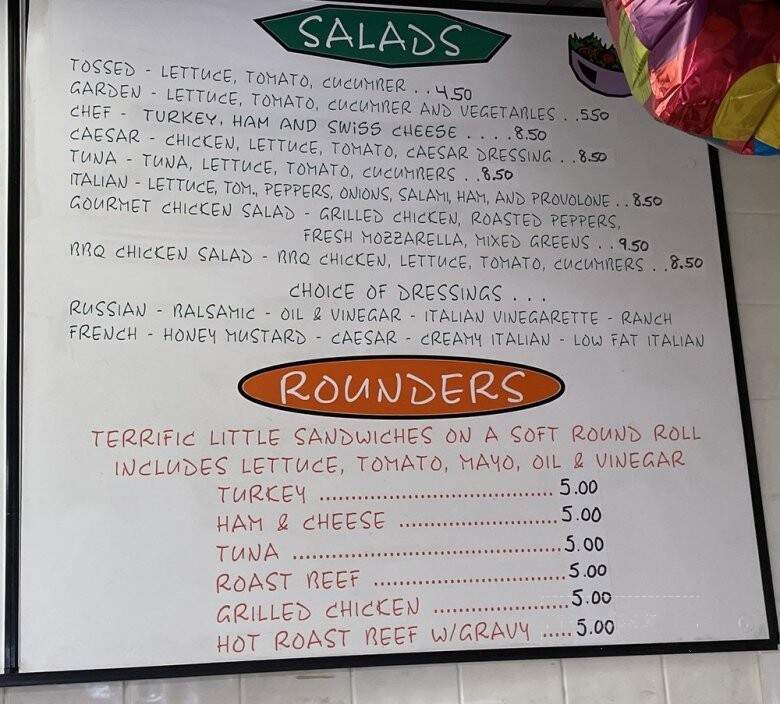 SALADS
TOSSED - LETTUCE, TOMATO, CUCUMBER . . 4.50
GARDEN - LETTUCE, TOMATO, CUCUMBER AND VEGETABLES . . 5.50
CHEF - TURKEY, HAM AND SWISS CHEESE . . . . 8.50
CAESAR - CHICKEN, LETTUCE, TOMATO, CAESAR DRESSING . . 8.50
TUNA - TUNA, LETTUCE, TOMATO, CUCUMBERS . . 8.50
ITALIAN - LETTUCE, TOM., PEPPERS, ONIONS, SALAMI, HAM, AND PROVOLONE . . 8.50
GOURMET CHICKEN SALAD - GRILLED CHICKEN, ROASTED PEPPERS,
FRESH MOZZARELLA, MIXED GREENS . . 9.50
BBQ CHICKEN SALAD - BBQ CHICKEN, LETTUCE, TOMATO, CUCUMBERS . . 8.50
CHOICE OF DRESSINGS . . .
RUSSIAN - BALSAMIC - OIL & VINEGAR - ITALIAN VINEGARETTE - RANCH
FRENCH - HONEY MUSTARD - CAESAR - CREAMY ITALIAN - LOW FAT ITALIAN
ROUNDERS
TERRIFIC LITTLE SANDWICHES ON A SOFT ROUND ROLL
INCLUDES LETTUCE, TOMATO, MAYO, OIL & VINEGAR
TURKEY ................................ 5.00
HAM & CHEESE ...................... 5.00
TUNA ..................................... 5.00
ROAST BEEF .......................... 5.00
GRILLED CHICKEN .................. 5.00
HOT ROAST BEEF W/GRAVY ..... 5.00